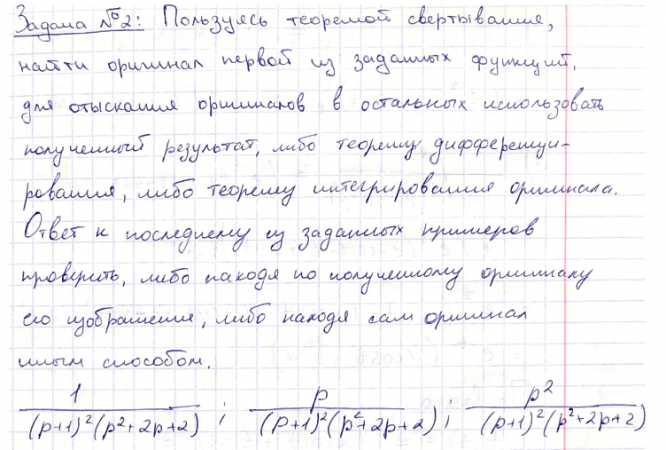 Задача №2: Пользуясь теоремой свертывания,
найти оригинал первой из заданных функций,
для отыскания оригиналов в остальных использовать
полученный результат, либо теорему дифференци-
рования, либо теорему интегрирования оригинала.
Ответ к последнему из заданных примеров
проверить, либо находя по полученному оригиналу
его изображение, либо находя сам оригинал
иным способом.
1/((p+1)²(p²+2p+2)) ; p/((p+1)²(p²+2p+2)) ; p²/((p+1)²(p²+2p+2))